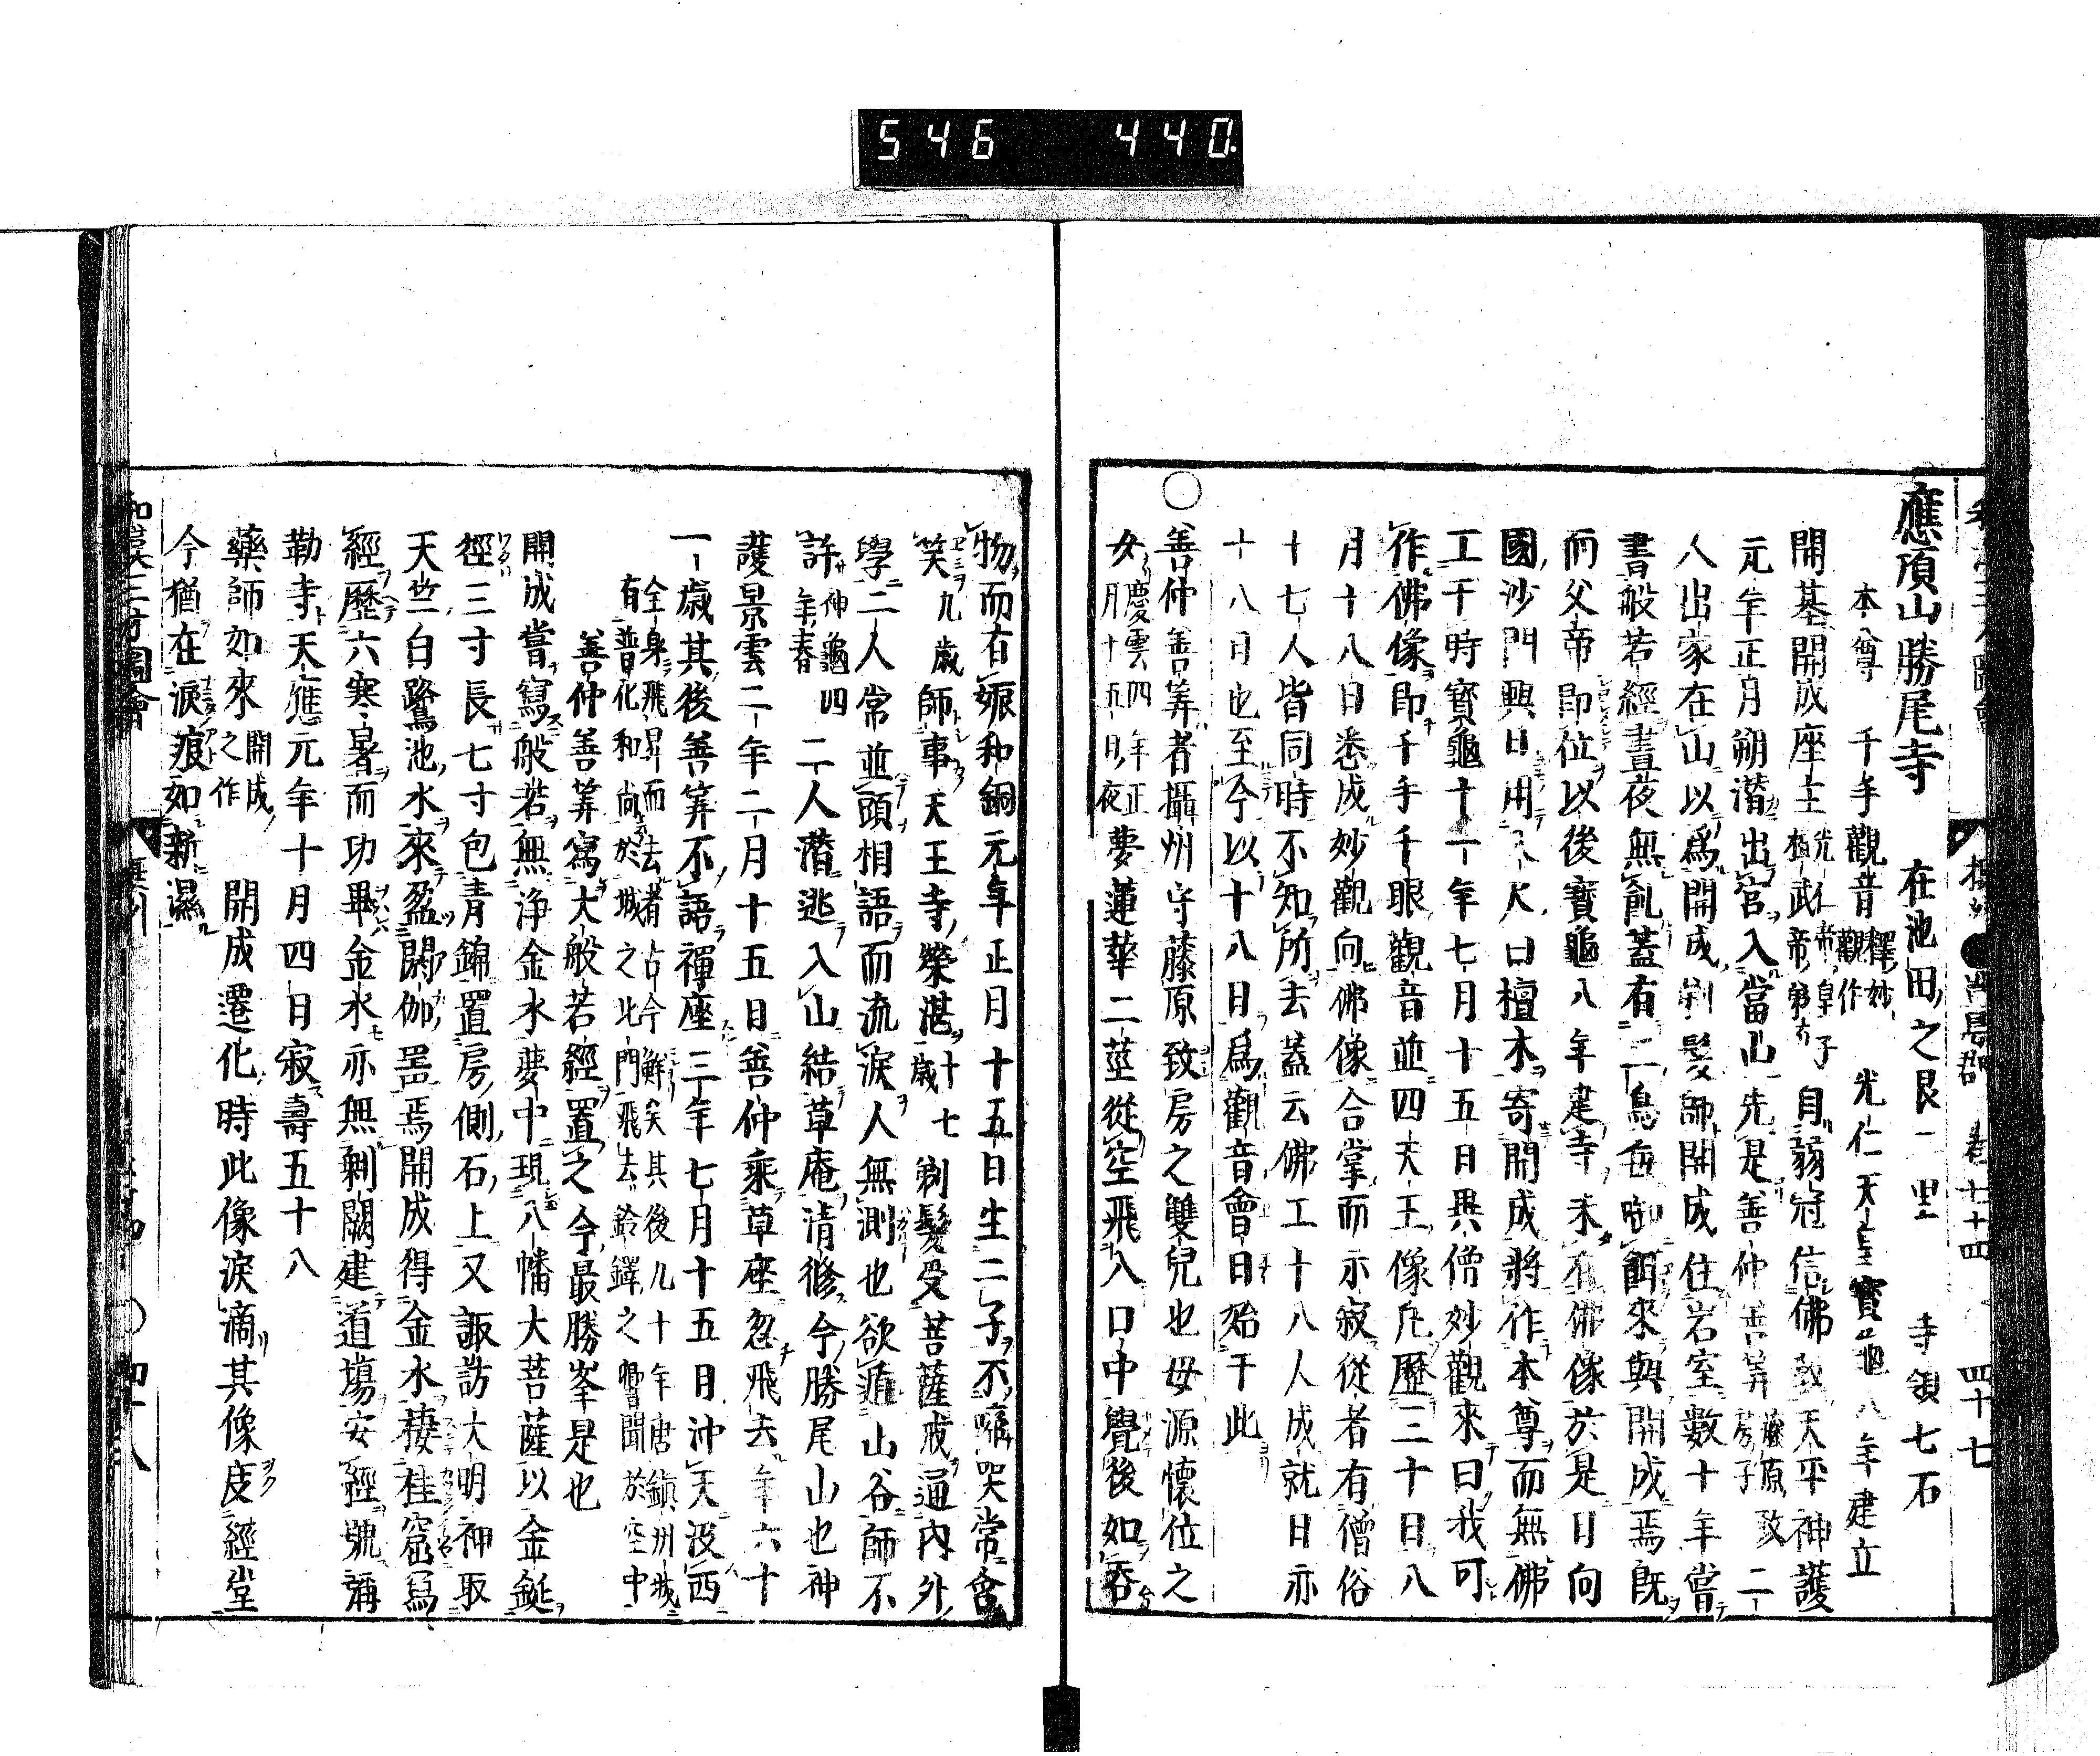 546 440
應頂山勝尾寺 在池田之艮一里 寺領七石
本尊 千手觀音 釋妙觀作 光仁天皇寶龜八年建立
開基開成座主 光仁帝皇子桓武帝弟 自弱冠信佛教天平神護
元年正月朔潜出宮入當山先是善仲善筭 藤原致房子 二
人出家在山以爲開成剃髮師開成住岩室數十年嘗
書般若經晝夜無飢蓋有二鳥每啣餌來與開成焉既
而父帝即位以後寶龜八年建寺未有佛像於是日向
國沙門興日用 人 曰檀木寄開成將作本尊而無佛
工于時寶龜十一年七月十五日異僧妙觀來曰我可
作佛像即千手千眼觀音並四天王像凡歷三十日八
月十八日悉成妙觀向佛像合掌而示寂從者有僧俗
十七人皆同時不知所去蓋云佛工十八人成就日亦
十八日也至今以十八日爲觀音會日始于此
○善仲善筭者攝州守藤原致房之雙兒也母源懷位之
女慶雲四年正月十五日夜夢蓮華二莖從空飛入口中覺後如吞
物而有娠和銅元年正月十五日生二子不啼哭常含
笑九歲師事天王寺榮湛十七歲 剃髮受菩薩戒通內外
學二人常並頭相語而流淚人無測也欲遁山谷師不
許神龜四年春 二人潜逃入山結草庵清修今勝尾山也神
護景雲二年二月十五日善仲乘草座忽飛去年六十
一歲其後善筭不語禪座三年七月十五日沖天沒西
全身飛昇而去者古今鮮矣其後九十年唐鎮州城
有普化和尚於城之北門飛去鈴鐸之響聞於空中
善仲善筭寫大般若經置之今最勝峯是也
開成嘗寫般若無浄金水夢中現八幡大菩薩以金鋌
徑三寸長七寸包青錦置房側石上又諏訪大明神取
天竺白鷺池水來盈閼伽噐焉開成得金水棲桂窟寫
經歷六寒暑而功畢金水亦無剰闕建道場安經號彌
勒寺天應元年十月四日寂壽五十八
藥師如來 開成之作 開成遷化時此像淚滴其像庋經堂
今猶在淚痕如新濕